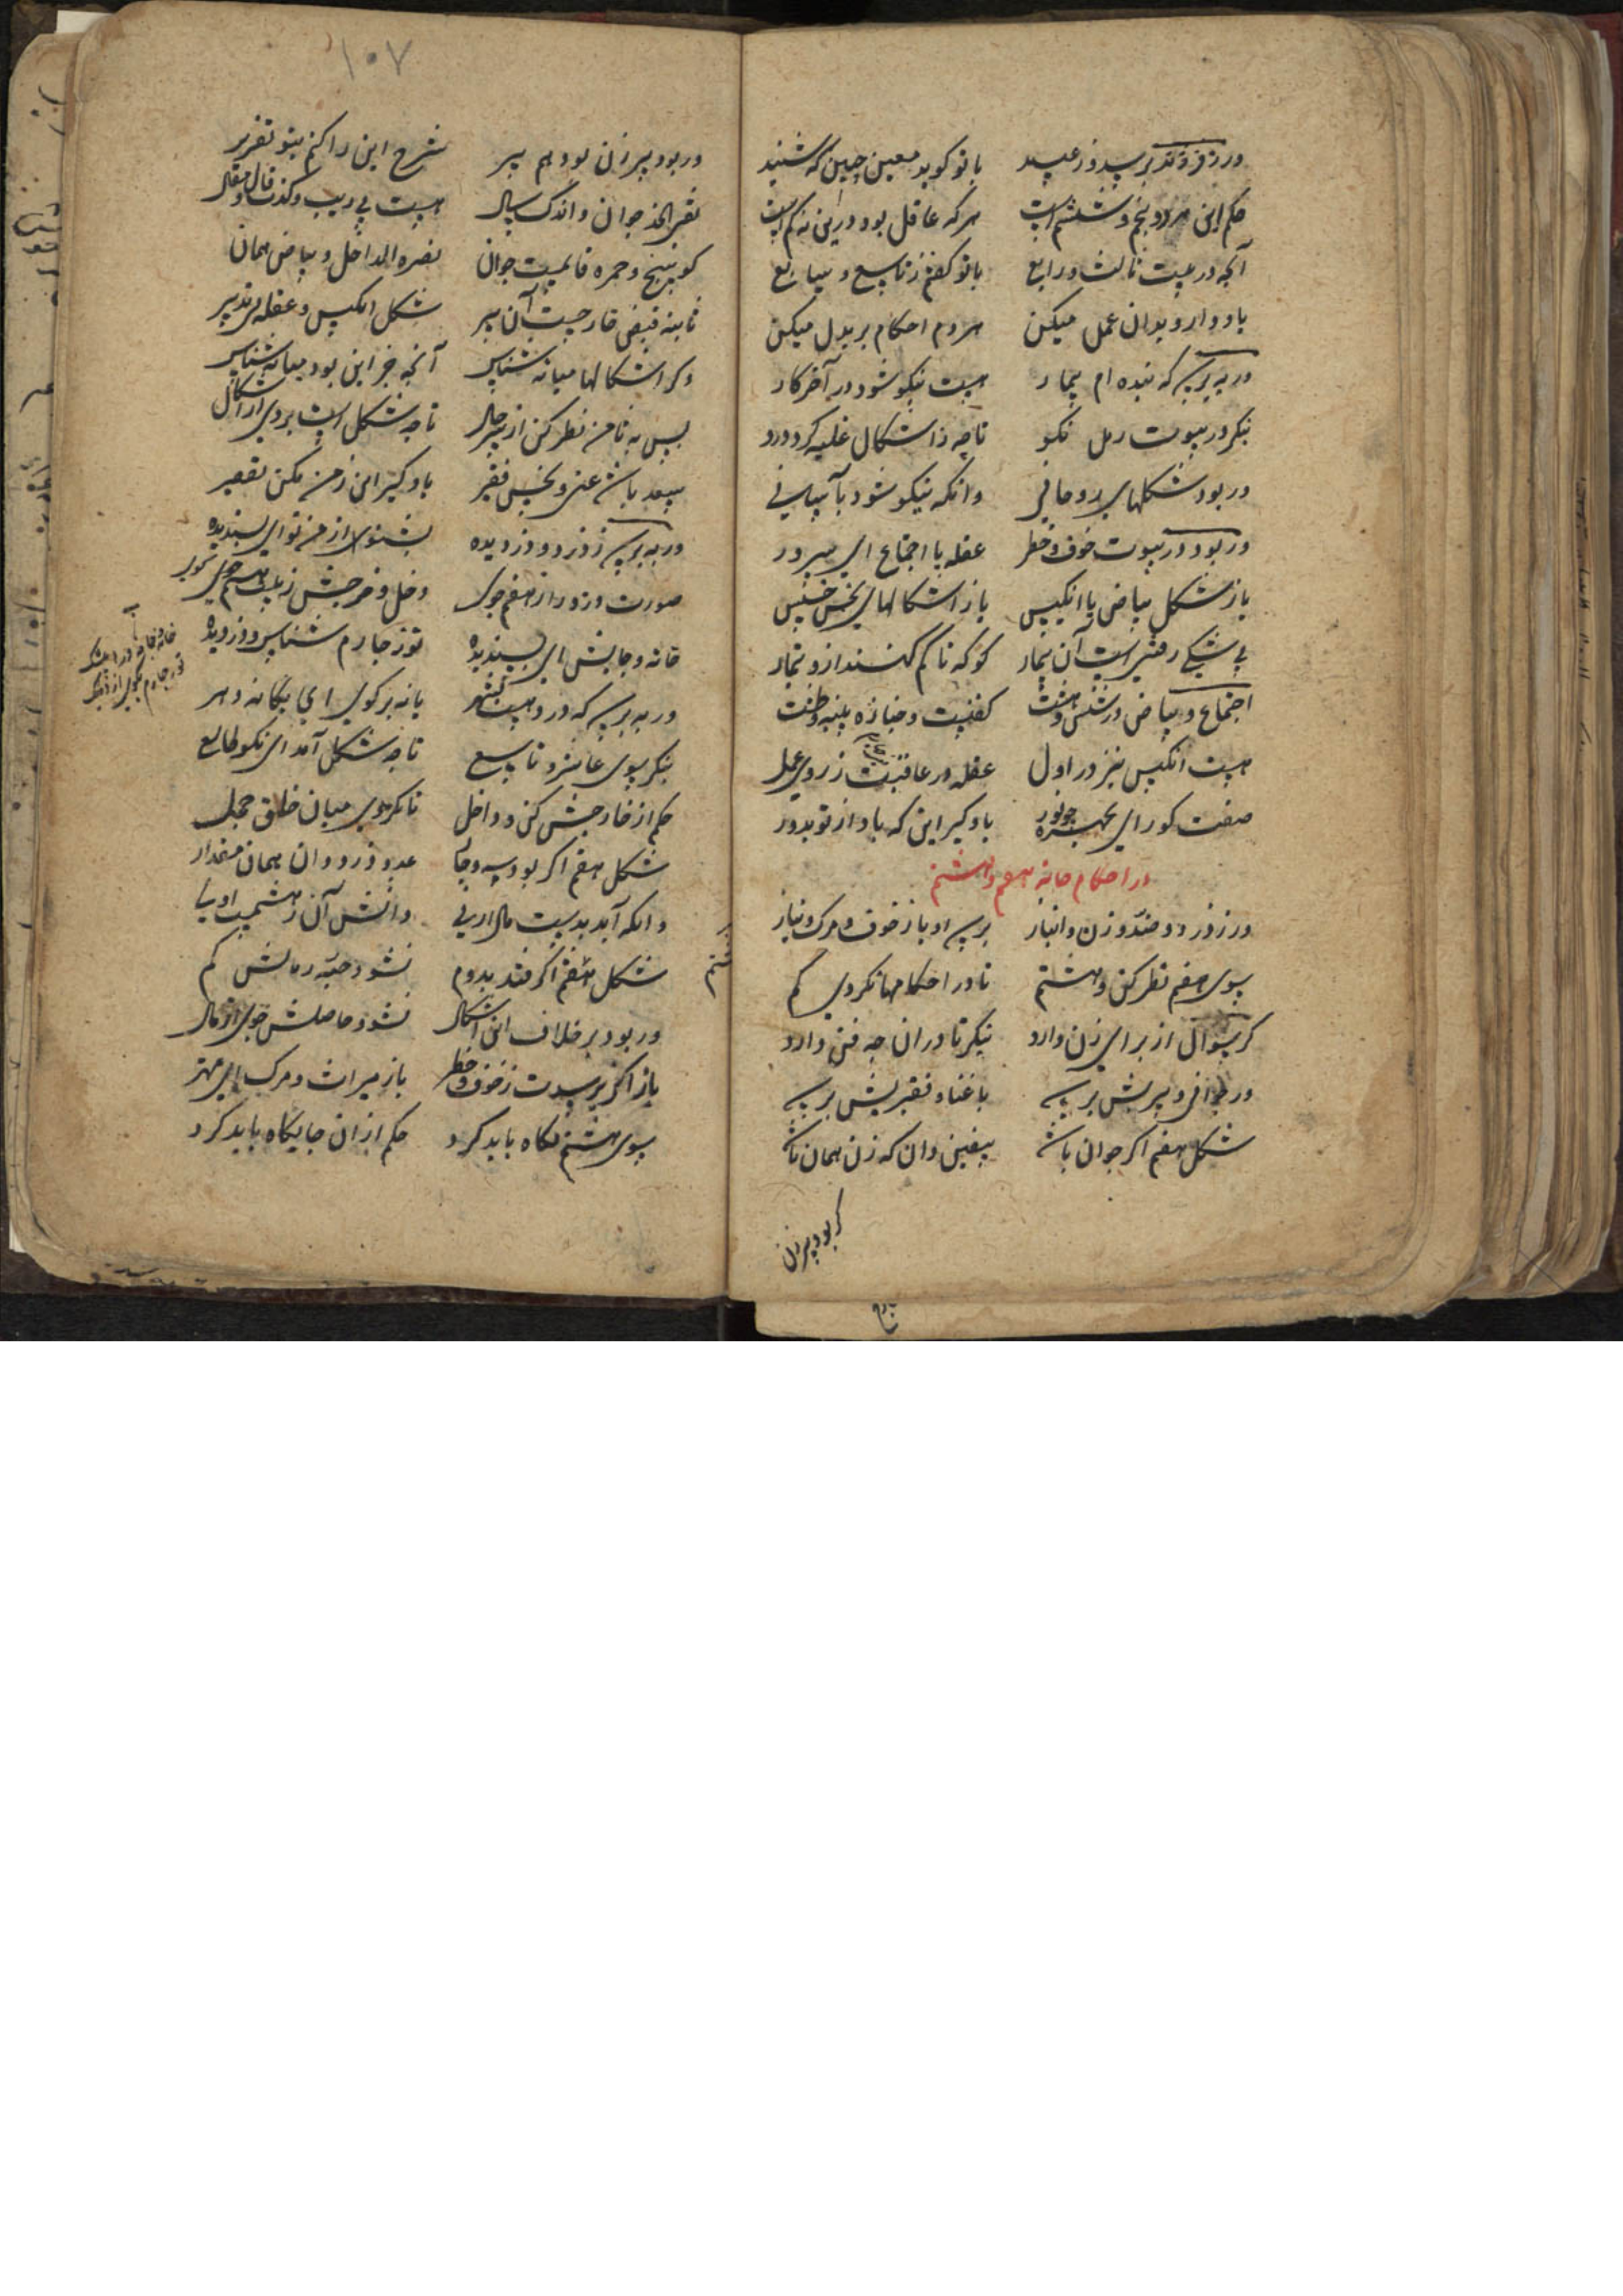 ور ز فرزند پرسد و ز عبید با تو گوید معین چنین که شنید
حکم این هر دو پنجم و ششم است هر که عاقل بود درین نه کم است
آنچه در بیت ثالث و رابع با تو گفتم ز تاسع و سابع
یاد دار و بدان عمل میکن هر دم احکام بر بدل میکن
ور بپرسد که بنده ام بیمار هست نیکو شود در آخر کار
بنگر در بیوت رمل نکو تا چه ز اشکال غلبه کرد درو
ور بود شکلهای روحانی دانکه نیکو شود بآسانی
ور بود در بیوت خوف و خطر عقله با اجتماع ای سرور
باز شکل بیاض با انکیس باز اشکالهای نحس خسیس
بی شکی رفتنی است آن بیمار کو که تا کم کنند ازو تیمار
اجتماع و بیاض در شش و هشت کفنست و جنازه پنبه و طشت
هست انکیس نیز در اول عقله در عاقبت ز روی عمل
صفت کور ای بچهره چو حور یاد گیر این که باد از تو بدور
در احکام خانه هفتم و هشتم
ور ز دزد و ضد و زن و انباز پرسد او باز خوف و مرگ و نیاز
سوی هفتم نظر کن و هشتم تا در احکامها نکردی گم
گر سوال از برای زن دارد بنگر تا در ان چه فن دارد
ور جوانی و پیریش پرسد با غنا و فقیریش پرسد
شکل هفتم اگر جوان باشد بیقین دان که زن همان باشد
گر بود پیر زن
۱۰۷
ور بود پیر زن بود هم پیر شرح این را کنم بتو تقریر
نقی الخد جوان و اندک سال هست بی ریب و کذب قال و مقال
کوسج و حمره قایمست جوان نصره الداخل و بیاض همان
ثابته قبض خارجست آن پیر شکل انکیس و عقله بی تدبیر
دگر اشکالها میانه شناس آنچه جز این بود میانه شناس
پس به ثامن نظر کن از سر حال تا چه شکل است بروی از اشکال
سعد باشد غنی و نحس فقیر یاد گیر این ز من مکن تقصیر
ور بپرسد ز دزد و دزدیده بشنوی از من تو ای پسندیده
صورت دزد را از هفتم جوی دخل و خرجش ز بیت هشتم جوی
خانه و جایش ای پسندیده توز چارم شناس و دزدیده
ور بپرسد که دزد هست بشهر یا نه برگوی ای یگانه دهر
بنگر سوی عاشر و تاسع تا چه شکل آمد ای نکو طالع
حکم از خارجش کن و داخل تا نگردی میان خلق خجل
شکل هفتم اگر بود سه و چار عدد دزد دان همان مقدار
دانکه آید بدست مال از پی
شکل هفتم اگر فتد بدوم نشود حبه ز مالش کم
ور بود بر خلاف این اشکال نشود حاصلش جوی از مال
باز اگر پرسدت ز خوف و خطر باز میراث و مرگ ای مهتر
سوی هشتم نگاه باید کرد حکم از ان جایگاه باید کرد